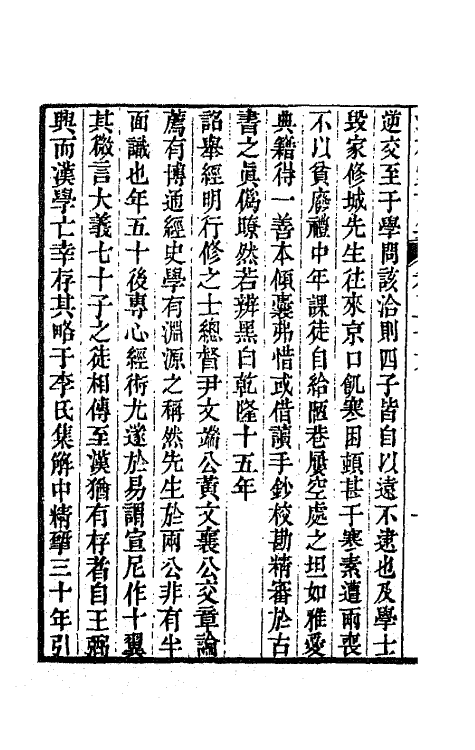 逆交至于學問該洽則四子皆自以遠不逮也及學士
毀家修城先生往來京口飢寒困頓甚于寒素遭兩喪
不以貧廢禮中年課徒自給陋巷屢空處之坦如雅愛
典籍得一善本傾囊弗惜或借讀手鈔校勘精審於古
書之眞僞瞭然若辨黑白乾隆十五年
詔舉經明行修之士總督尹文端公黃文襄公交章論
薦有博通經史學有淵源之稱然先生於兩公非有半
面識也年五十後專心經術尤邃於易謂宣尼作十翼
其微言大義七十子之徒相傳至漢猶有存者自王弼
興而漢學亡幸存其略于李氏集解中精揅三十年引